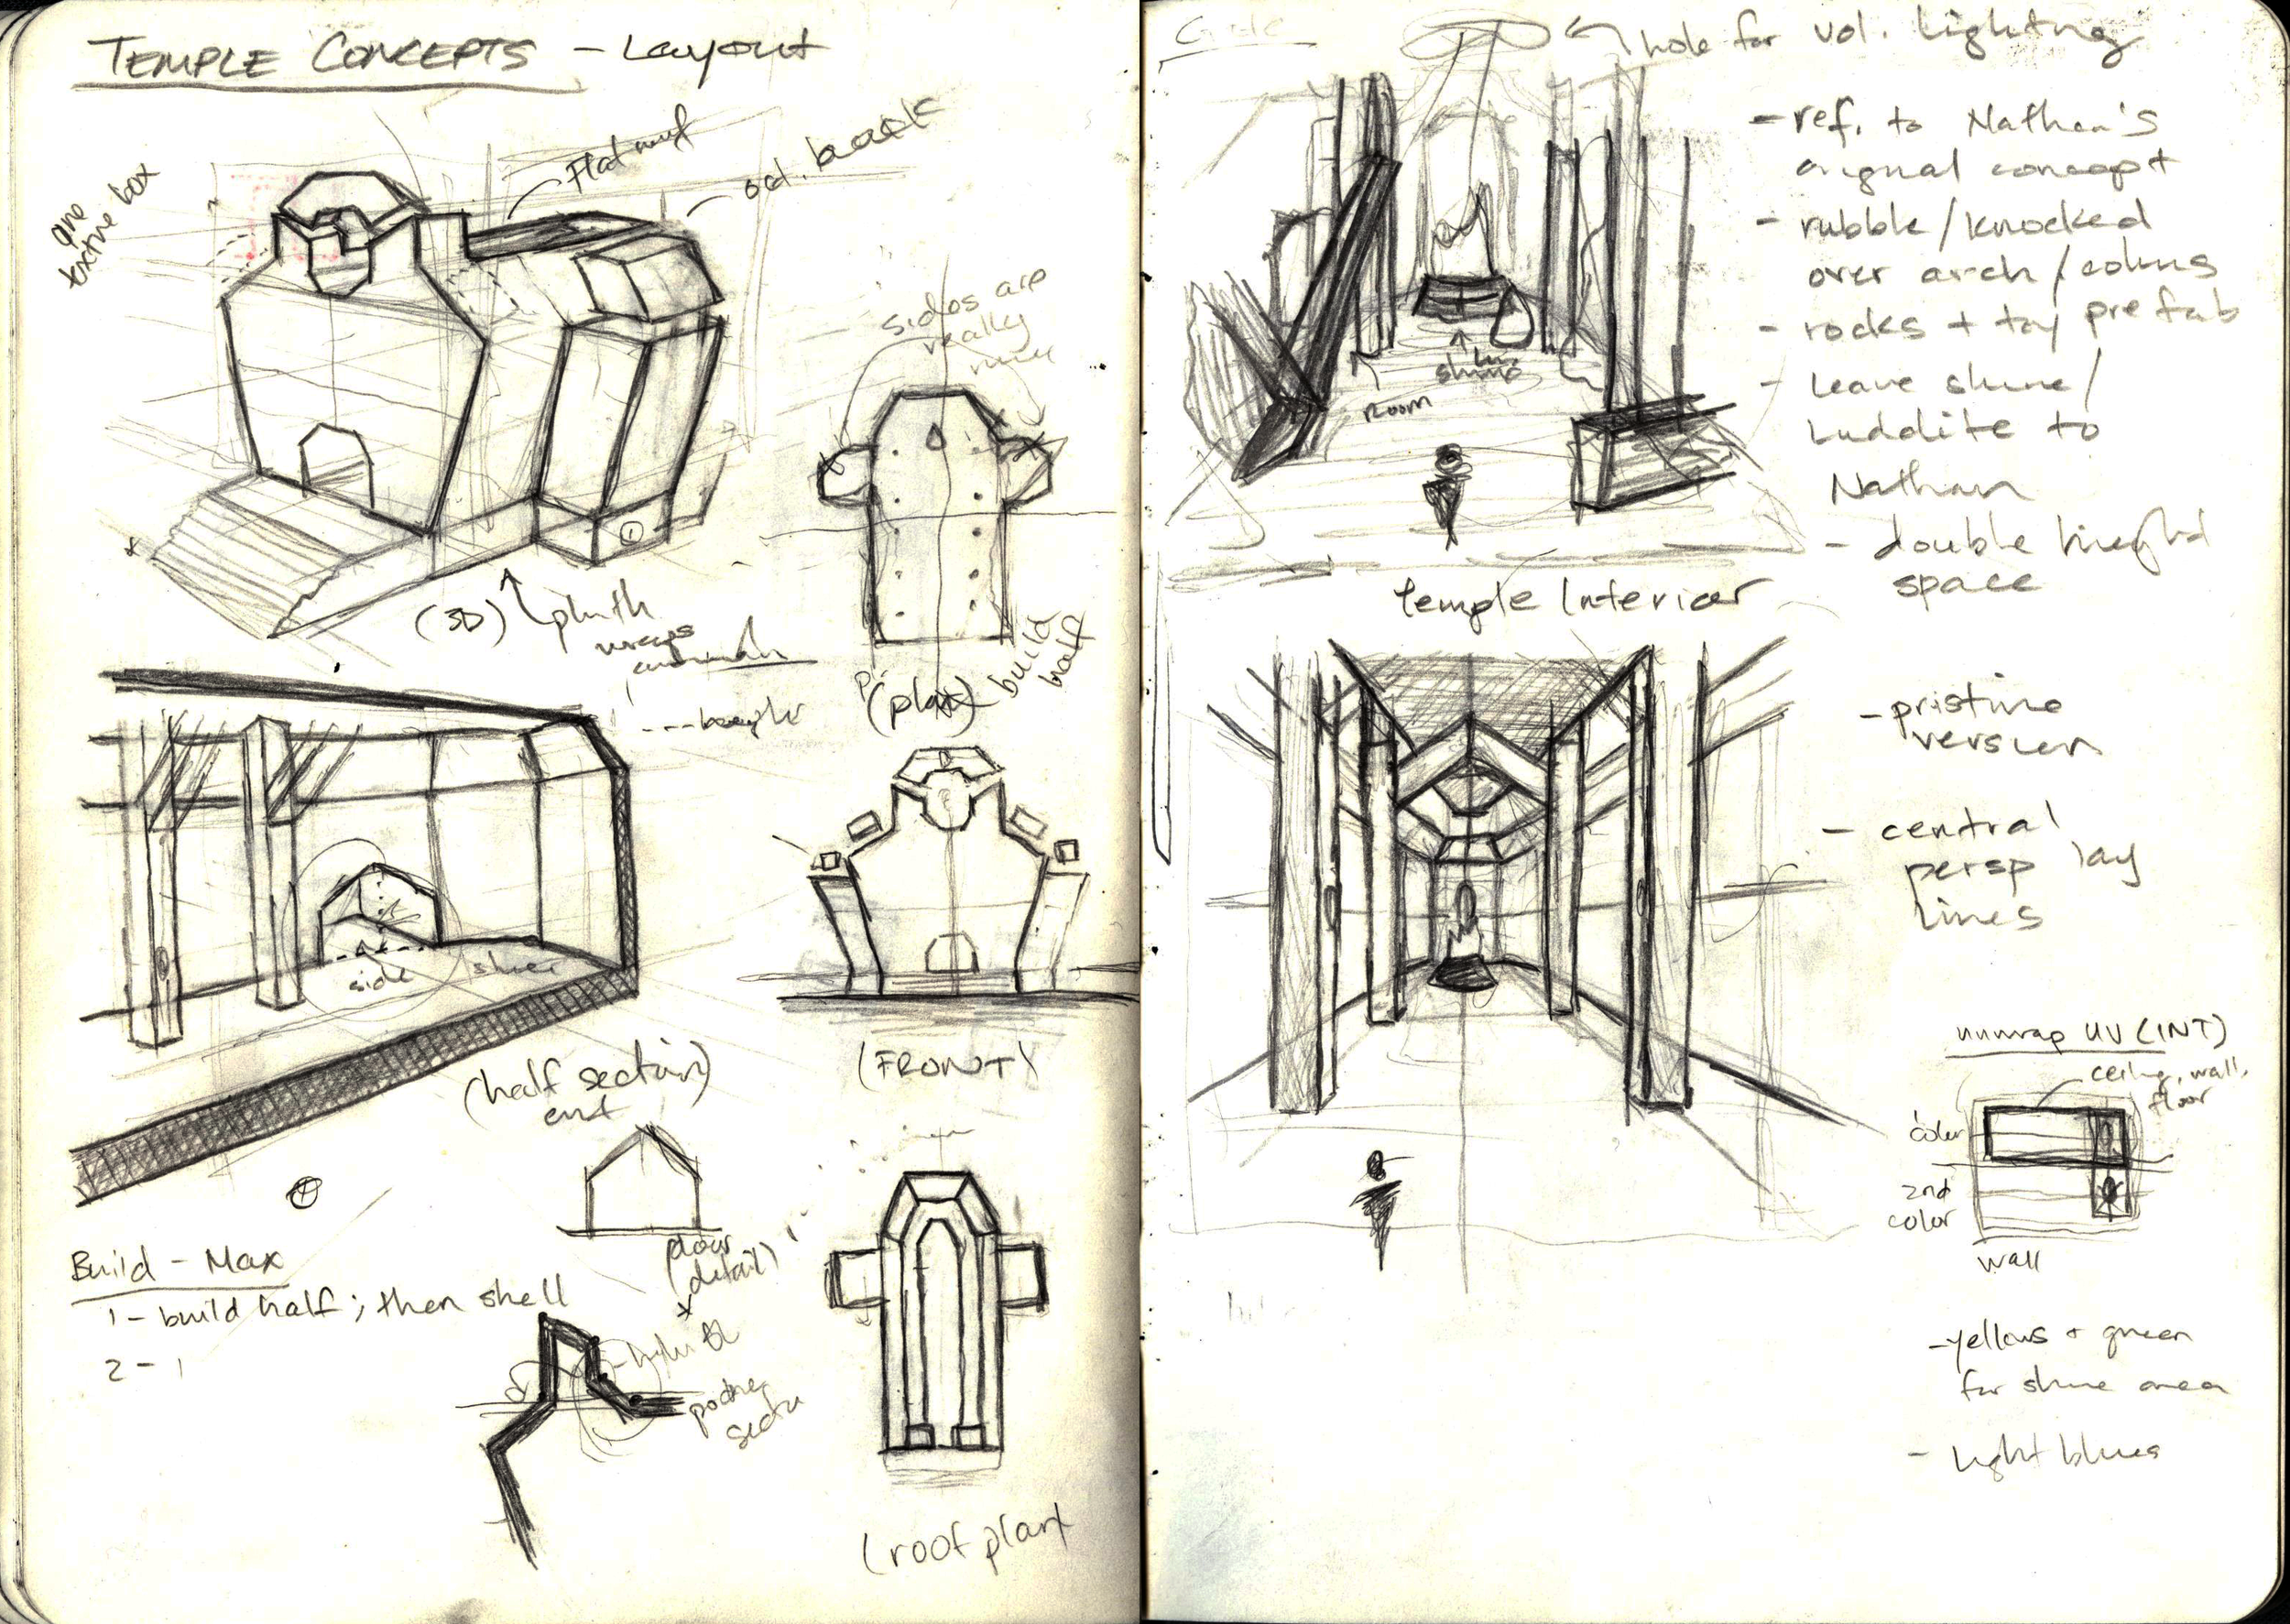 TEMPLE CONCEPTS - Layout
Flat roof
oct. back
texture box
sides are
really
(3D)
plinth
wraps
build
half
(plan)
side
(half section)
(FRONT)
door
detail)
Build - Max
1 - build half; then shell
2 -
(roof plan
hole for vol. lighting
- ref. to Nathan's
original concept
- rubble / knocked
over arch / colums
- rocks + prefab
- Leave shrine /
Luddite to
Nathan
- double height
space
shrine
Room
Temple Interior
- pristine
version
- central
persp lay
lines
unwrap UV (INT)
ceiling, wall,
floor
color
2nd
color
wall
- yellows + green
for shrine area
- light blues